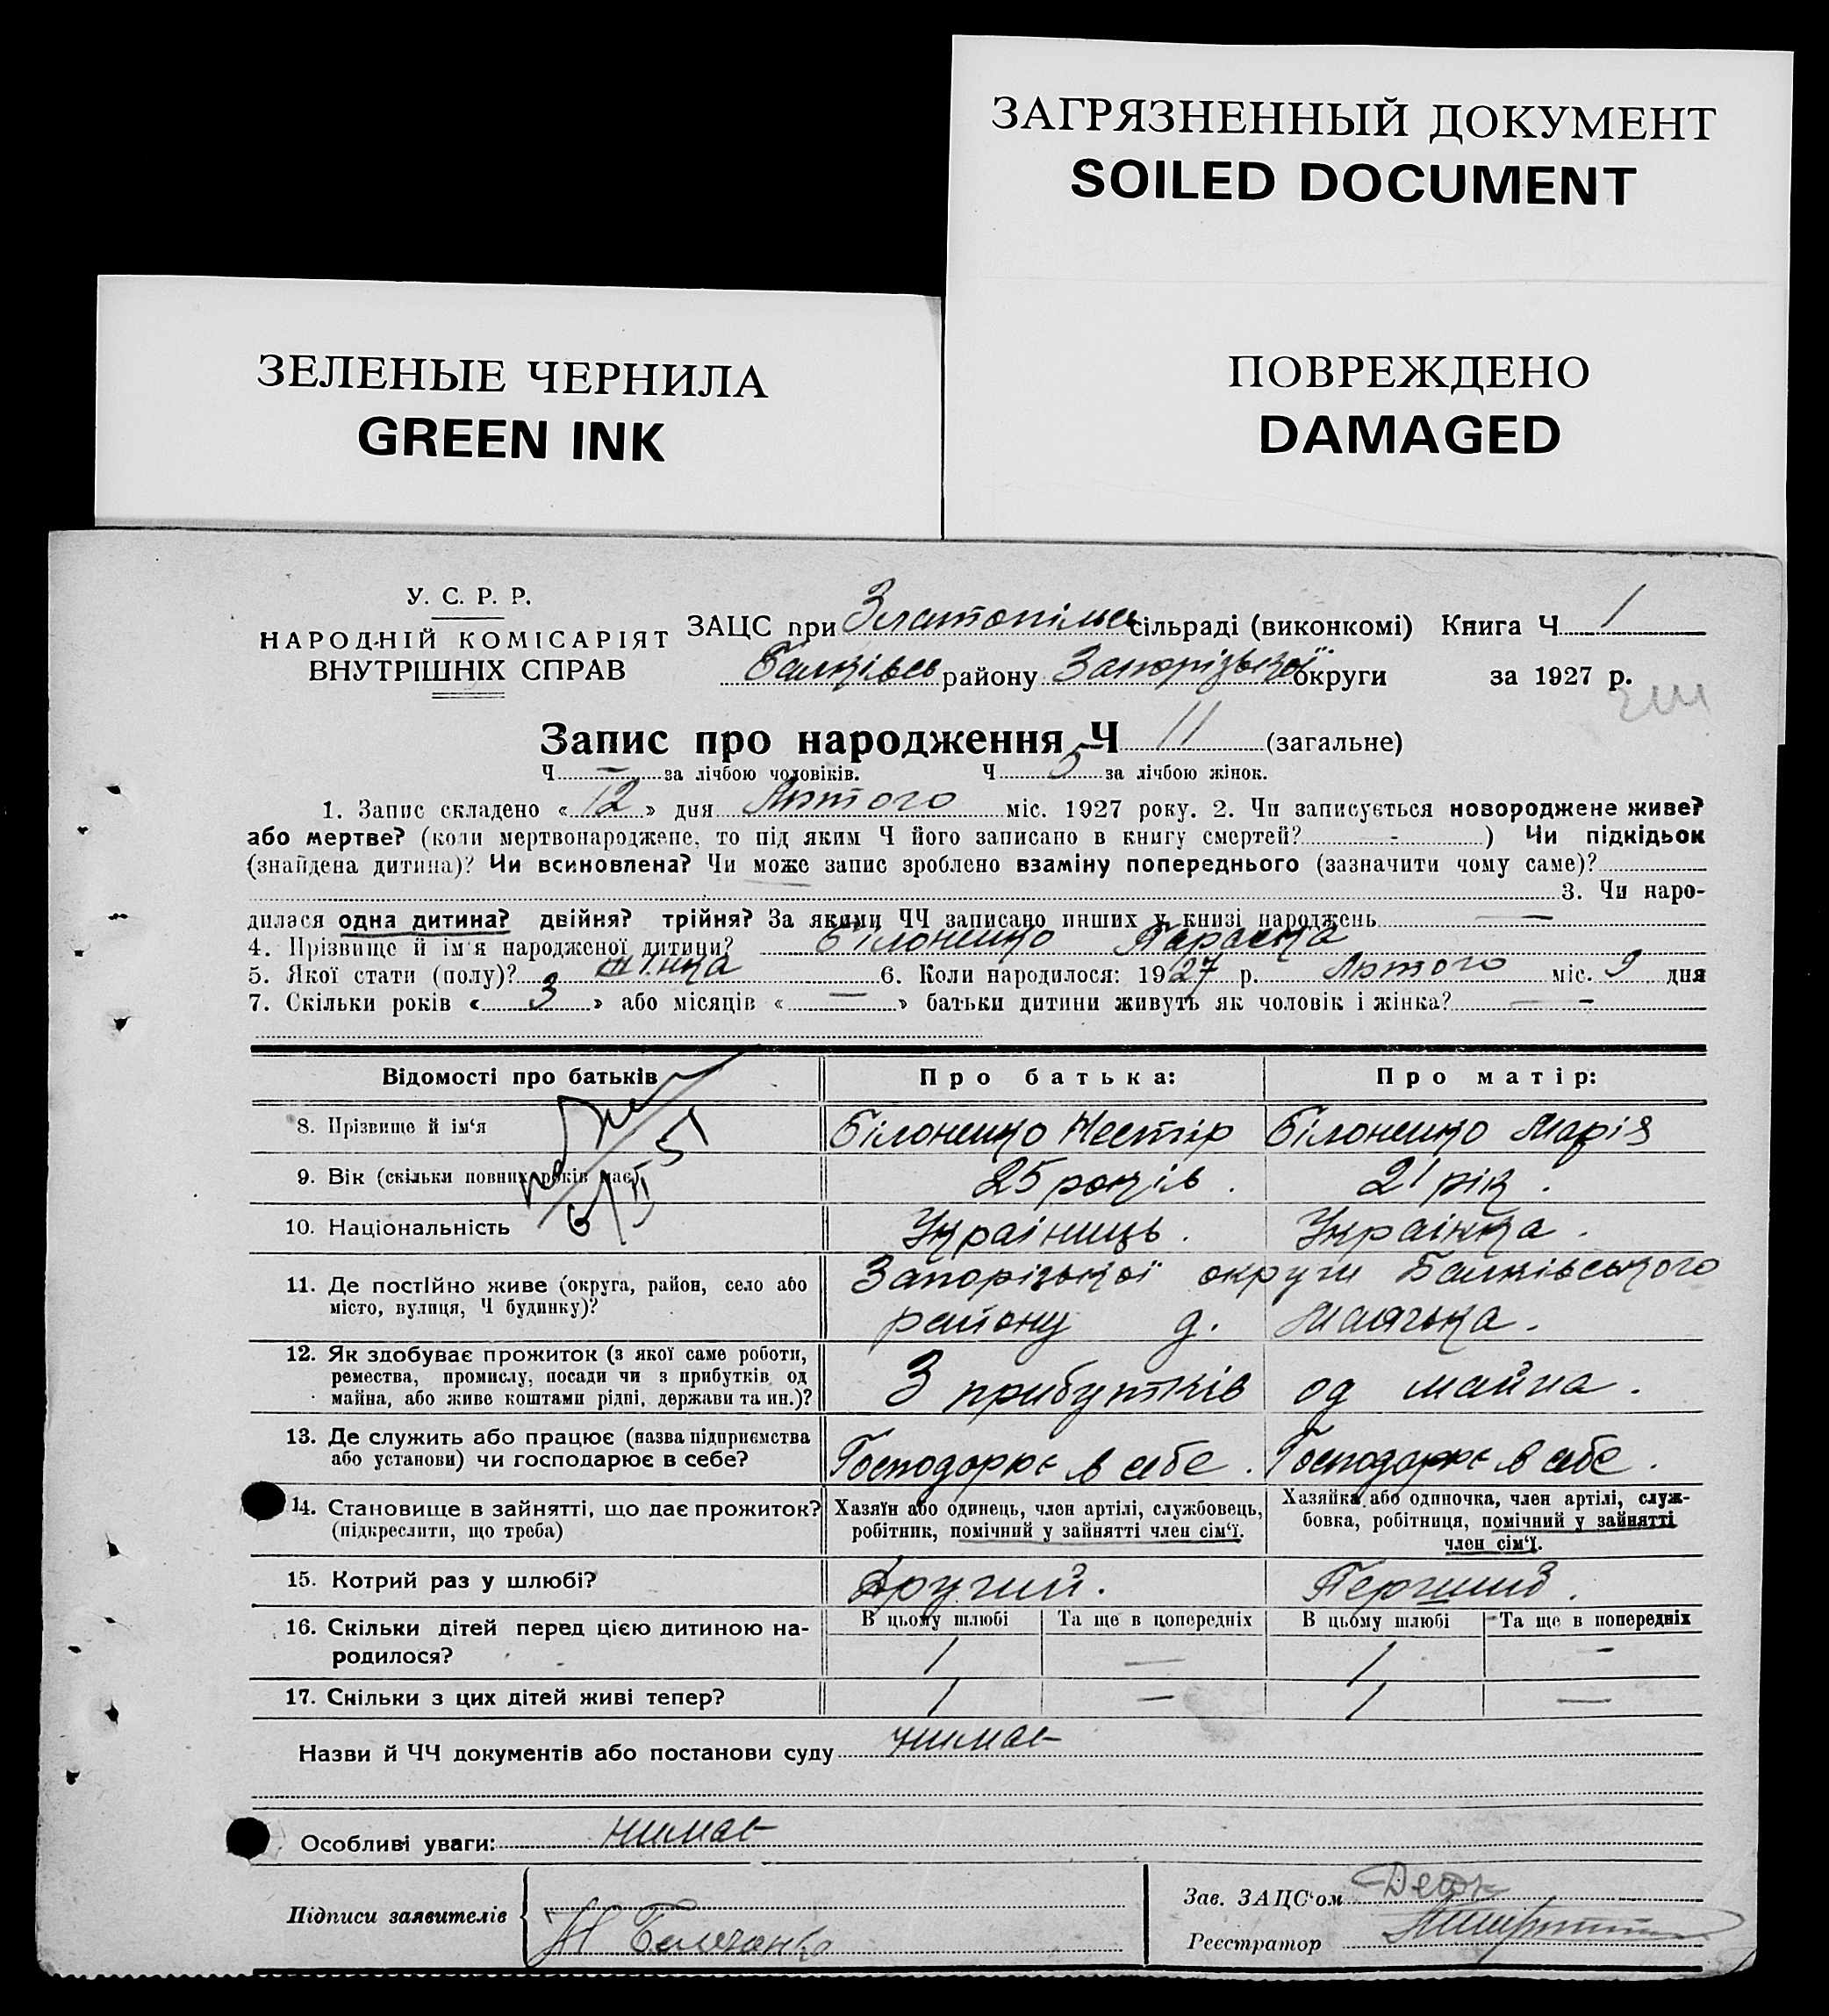 ЗАГРЯЗНЕННЫЙ ДОКУМЕНТ
SOILED DOCUMENT
ЗЕЛЕНЫЕ ЧЕРНИЛА
GREEN INK
ПОВРЕЖДЕНО
DAMAGED
У. С. Р. Р.
НАРОДНІЙ КОМІСАРІЯТ
ВНУТРІШНІХ СПРАВ
ЗАЦС при Златопільс сільраді (виконкомі) Книга Ч 1
Балківсь району Запорізької округи за 1927 р.
Запис про народження Ч 11 (загальне)
Ч — за лічбою чоловіків. Ч 5 за лічбою жінок.
1. Запис складено « 12 » дня Лютого міс. 1927 року. 2. Чи записується новороджене живе?
або мертве? (коли мертвонароджене, то під яким Ч його записано в книгу смертей? - ) Чи підкідьок
(знайдена дитина)? Чи всиновлена? Чи може запис зроблено взаміну попереднього (зазначити чому саме)?
3. Чи наро-
дилася одна дитина? двійня? трійня? За якими ЧЧ записано инших у книзі народжень —
4. Прізвище й ім'я народженої дитини? Білоненко Параска
5. Якої стати (полу)? жінка 6. Коли народилося: 1927 р. Лютого міс. 9 дня
7. Скільки років « 3 » або місяців « — » батьки дитини живуть як чоловік і жінка? — -
Відомості про батьків Про батька: Про матір:
8. Прізвище й ім‘я Білоненко Нестір Білоненко Марія
9. Вік (скільки повних років має) 25 років. 21 рік.
10. Національність Українець. Українка.
11. Де постійно живе (округа, район, село або Запорізької округи Балківського
місто, вулиця, Ч будинку)? району д. Маячка.
12. Як здобуває прожиток (з якої саме роботи,
ремества, промислу, посади чи з прибутків од З прибутків од майна.
майна, або живе коштами рідні, держави та ин.)?
13. Де служить або працює (назва підприємства
або установи) чи господарює в себе? Господорює в себе. Господорює в себе.
14. Становище в зайнятті, що дає прожиток? Хазяїн або одинець, член артілі, службовець, Хазяйка або одиночка, член артілі, служ-
(підкреслити, що треба) робітник, помічний у зайнятті член сім‘ї. бовка, робітниця, помічний у зайнятті
член сім‘ї.
15. Котрий раз у шлюбі? Другий. Перший.
16. Скільки дітей перед цією дитиною на- В цьому шлюбі Та ще в попередніх В цьому шлюбі Та ще в попередніх
родилося? 1 — 1 -
17. Скільки з цих дітей живі тепер? 1 — 1 —
Назви й ЧЧ документів або постанови суду нимає
Особливі уваги: нимає
Підписи заявителів
Зав. ЗАЦС‘ом
Реєстратор